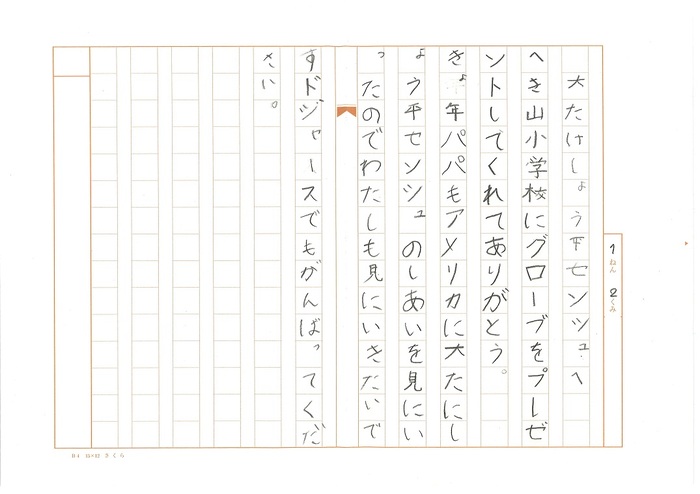 1ねん 2くみ
大たけしょう平センシュへ
へき山小学校にグローブをプレゼ
ントしてくれてありがとう。
きょ年パパもアメリカに大たにし
ょう平センシュのしあいを見にい
ったのでわたしも見にいきたいで
すドジャースでもがんばってくだ
さい。